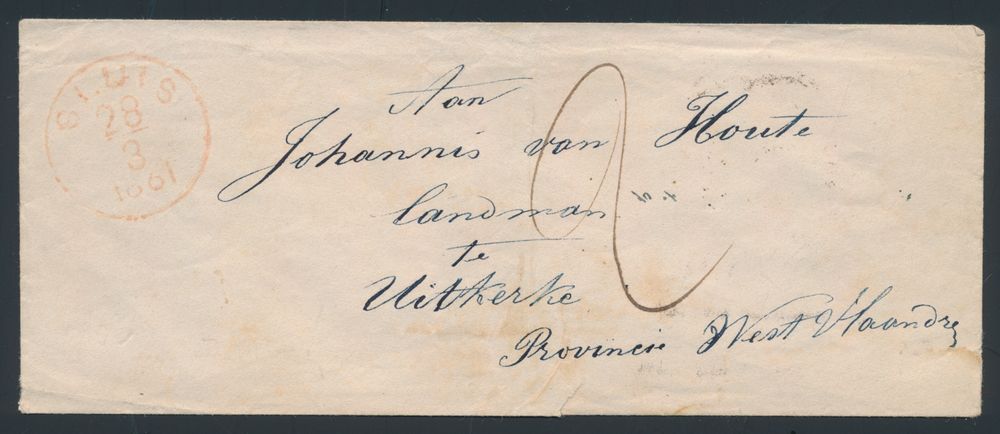 SLUIS
28
8
1861
Aan
Johannis van Houte
landman
te
Uitkerke
Provincie West Vlaandre
2